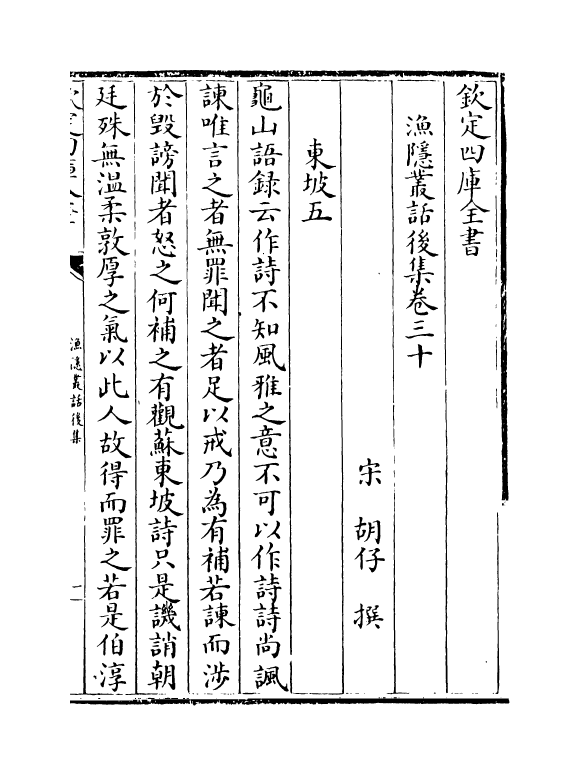 欽定四庫全書
漁隱叢話後集卷三十
宋 胡仔 撰
東坡五
龜山語録云作詩不知風雅之意不可以作詩詩尚諷
諫唯言之者無罪聞之者足以戒乃為有補若諫而涉
於毀謗聞者怒之何補之有觀蘇東坡詩只是譏誚朝
廷殊無溫柔敦厚之氣以此人故得而罪之若是伯淳
漁隱叢話後集